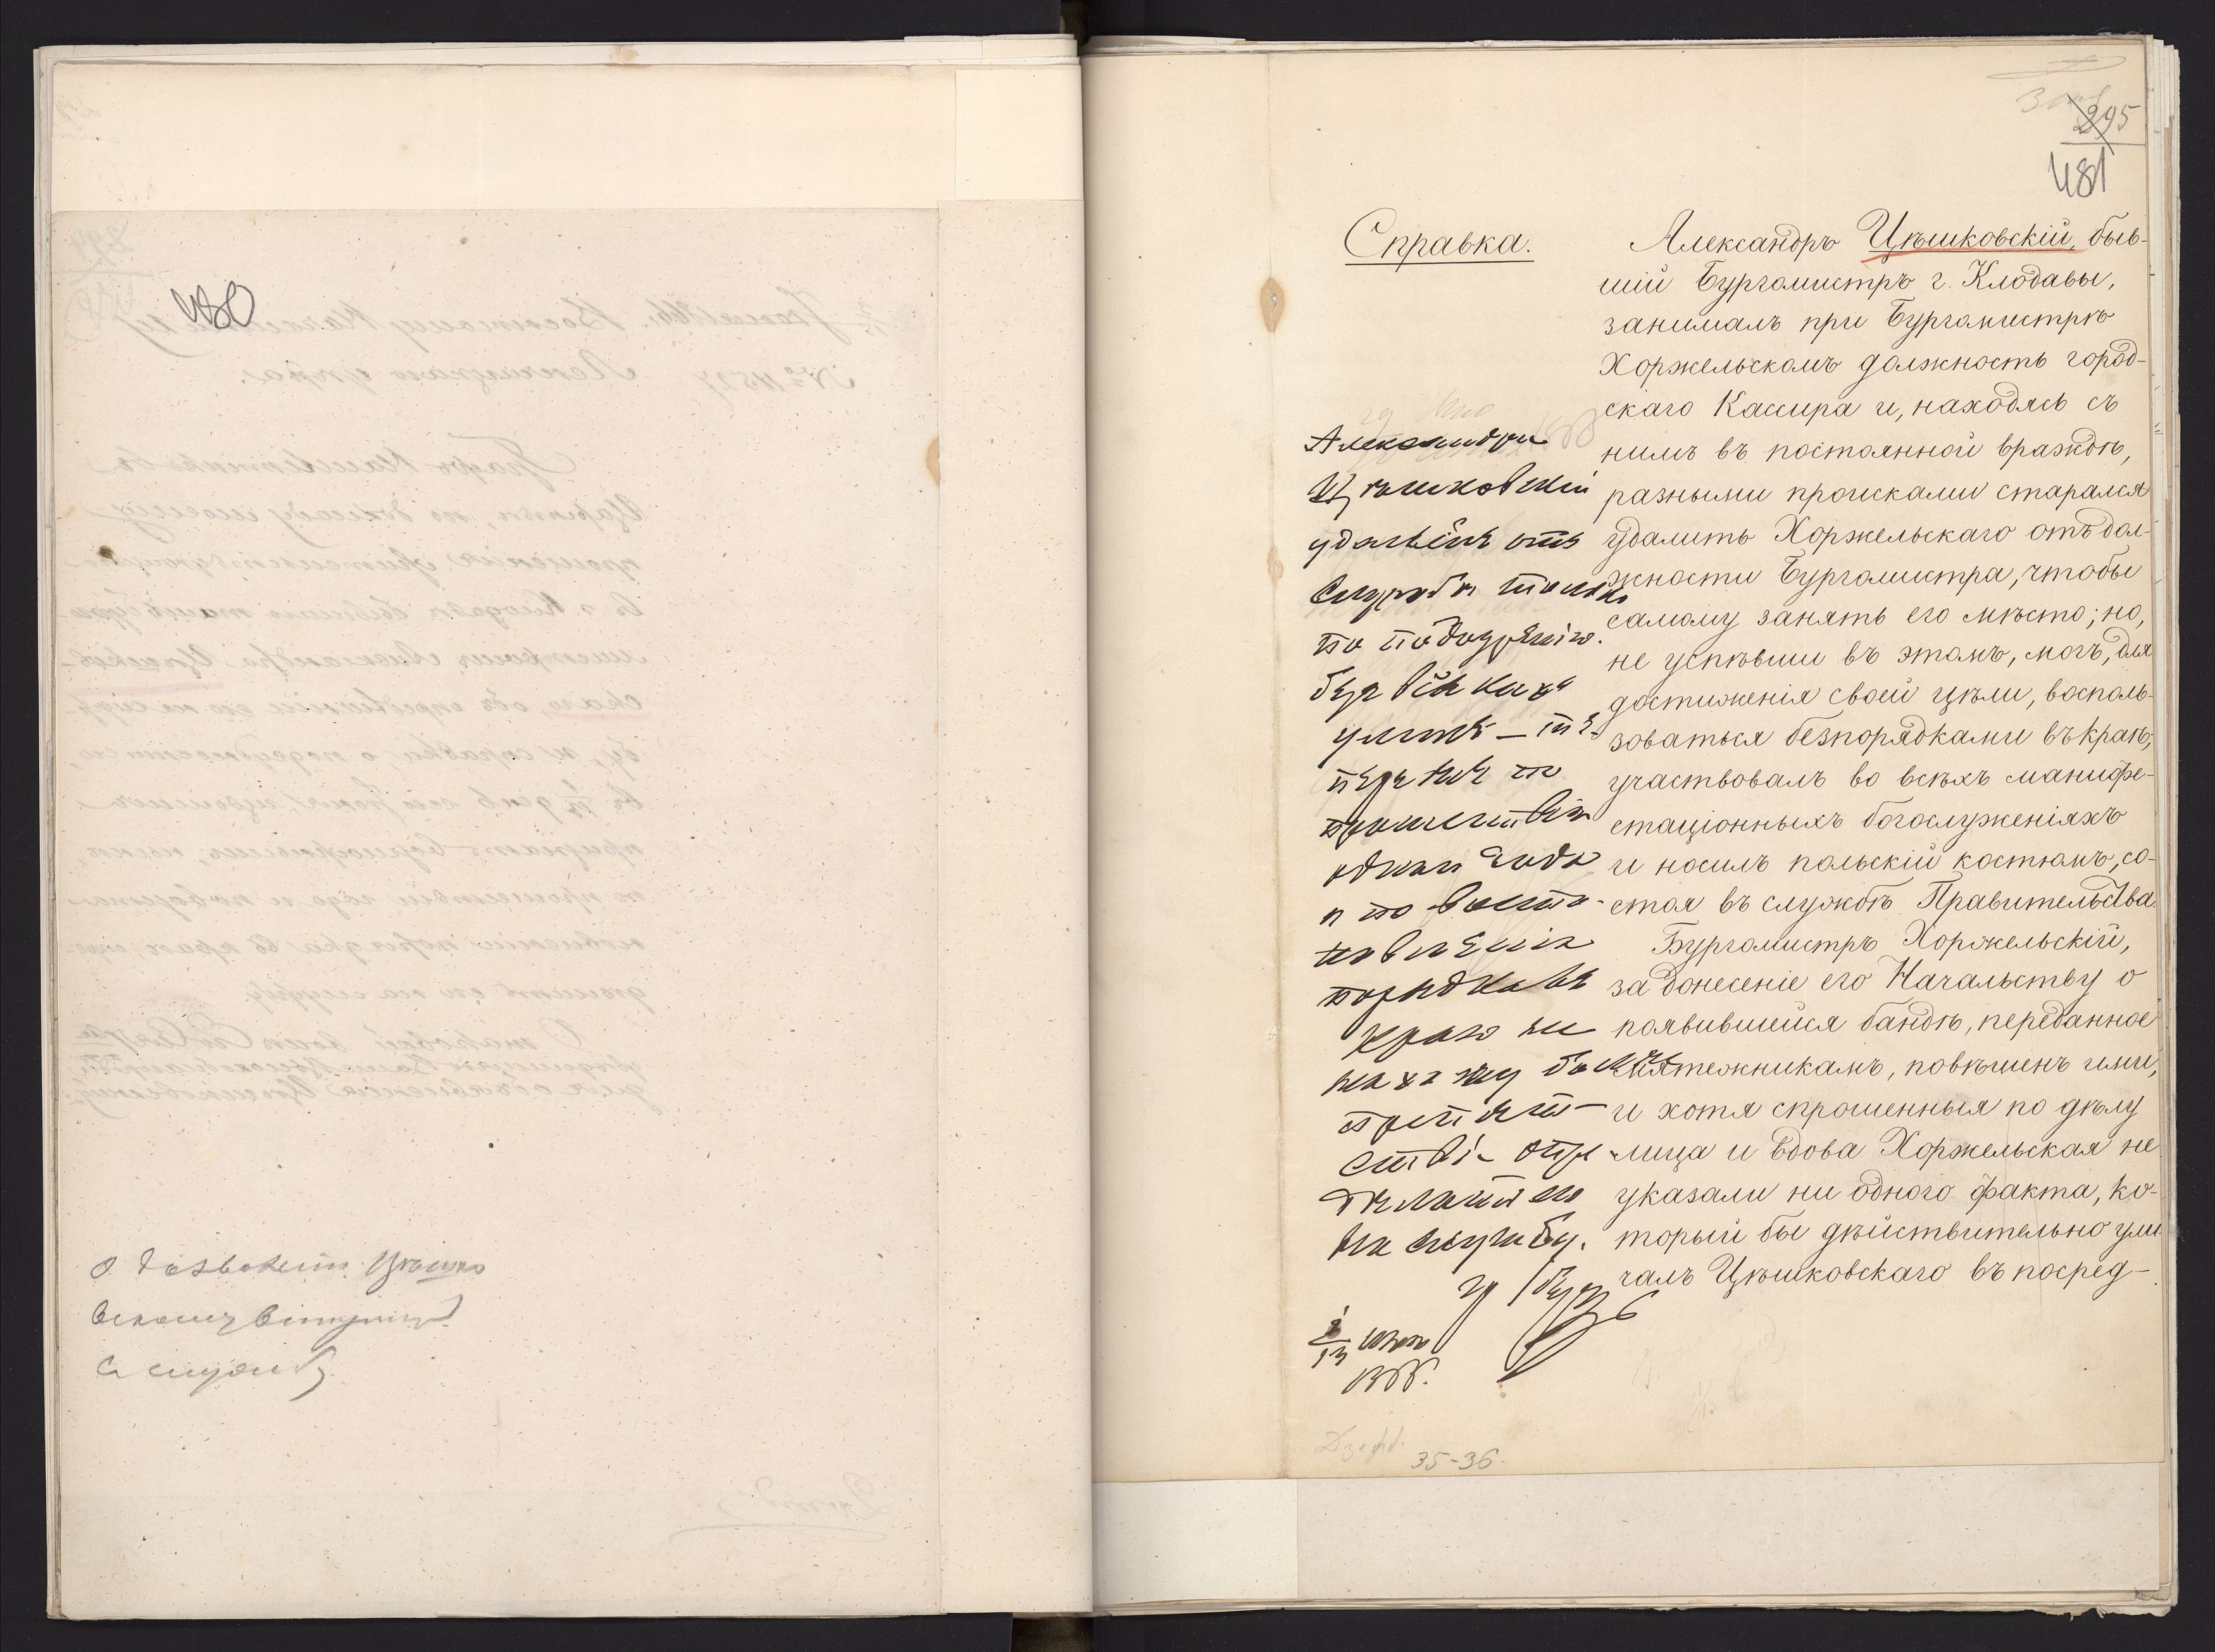 480
О дозволеніи Цѣшко
вскому вступить
въ службу
295
481
Справка.
Александръ Цѣшковскій, быв-
шій Бургомистръ г. Клодавы,
занималъ при Бургомистрѣ
Хоржельскомъ должность город-
скаго Кассира и, находясь съ
нимъ въ постоянной враждѣ,
разными происками старался
удалить Хоржельскаго отъ дол-
жности Бургомистра, чтобы
самому занять его мѣсто; но,
не успѣвши въ этомъ, могъ, для
достиженія своей цѣли, восполь-
зоваться безпорядками въ краѣ;
участвовалъ во всѣхъ манифе-
стаціонныхъ богослуженіяхъ
и носилъ польскій костюмъ, со-
стоя въ службѣ Правительства.
Бургомистръ Хоржельскій,
за донесеніе его Начальству о
появившейся бандѣ, переданное
мятежникамъ, повѣшенъ ими,
и хотя спрошенныя по дѣлу
лица и вдова Хоржельская не
указали ни одного факта, ко-
торый бы дѣйствительно ули
чалъ Цѣшковскаго въ посред-
Александръ
Цѣшковскій
удаленъ отъ
службы только
по подозрѣнію
безъ всякихъ
уликъ — те-
перь же по
прошествіи
одного года
и по возста-
новленіи
порядка въ
краѣ не
нахожу
препят-
ствія опре
дѣлить его
на службу.
1/13 Іюня
186
35-36